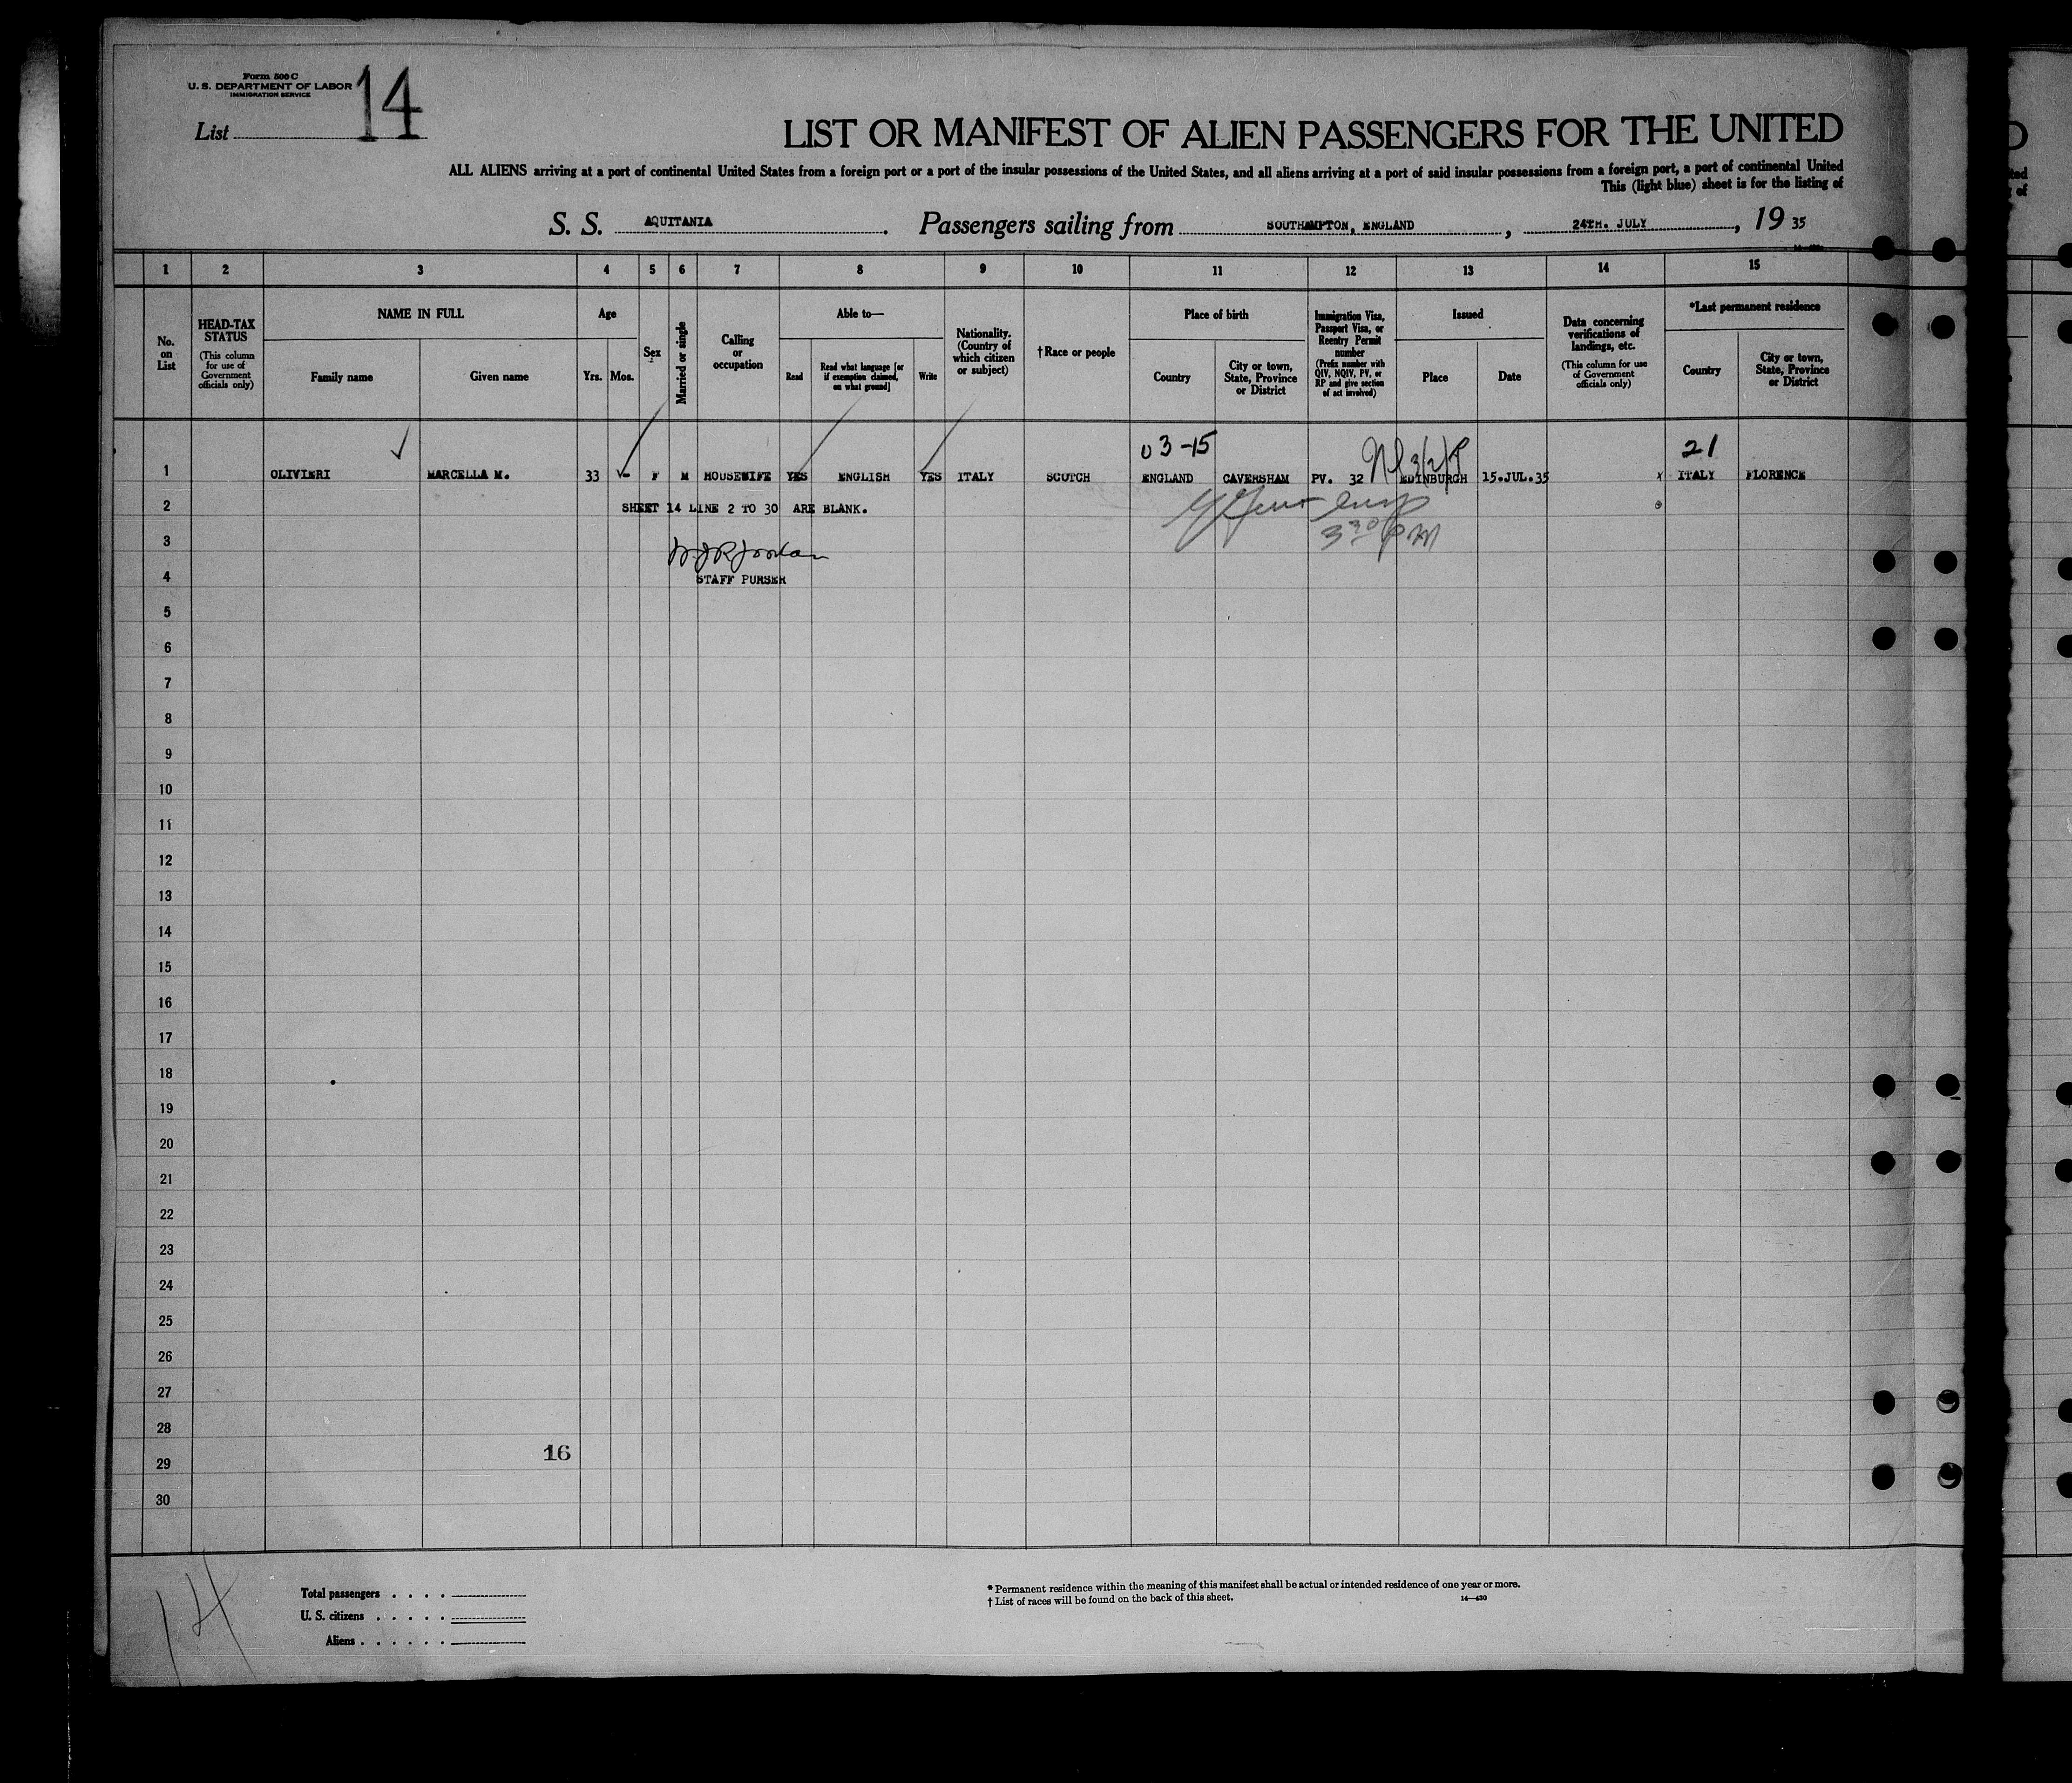 Form 500 C
U. S. DEPARTMENT OF LABOR
IMMIGRATION SERVICE
List 14
LIST OR MANIFEST OF ALIEN PASSENGERS FOR THE UNITED
ALL ALIENS arriving at a port of continental United States from a foreign port or a port of the insular possessions of the United States, and all aliens arriving at a port of said insular possessions from a foreign port, a port of continental United
This (light blue) sheet is for the listing of
S. S. AQUITANIA. Passengers sailing from SOUTHAMPTON, ENGLAND, 24TH. JULY, 19 35
1 2 3 4 5 6 7 8 9 10 11 12 13 14 15
No. on List
HEAD-TAX STATUS
(This column for use of Government officials only)
NAME IN FULL
Family name Given name
Age
Yrs. Mos.
Sex
Married or single
Calling or occupation
Able to—
Read Read what language [or if exemption claimed, on what ground] Write
Nationality. (Country of which citizen or subject)
†Race or people
Place of birth
Country City or town, State, Province or District
Immigration Visa, Passport Visa, or Reentry Permit number
(Prefix number with QIV, NQIV, PV, or RP and give section of act involved)
Issued
Place Date
Data concerning verifications of landings, etc.
(This column for use of Government officials only)
*Last permanent residence
Country City or town, State, Province or District
03-15 21
1 OLIVIERI MARCELLA M. 33 F M HOUSEWIFE YES ENGLISH YES ITALY SCOTCH ENGLAND CAVERSHAM PV. 32 EDINBURGH 15.JUL.35 x ITALY FLORENCE
2 SHEET 14 LINE 2 TO 30 ARE BLANK.
3 3 30 PM
4 STAFF PURSER
5
6
7
8
9
10
11
12
13
14
15
16
17
18
19
20
21
22
23
24
25
26
27
28
16
29
30
14
Total passengers . . . .
U. S. citizens . . . . .
Aliens . . . . . .
* Permanent residence within the meaning of this manifest shall be actual or intended residence of one year or more.
† List of races will be found on the back of this sheet.
14—430